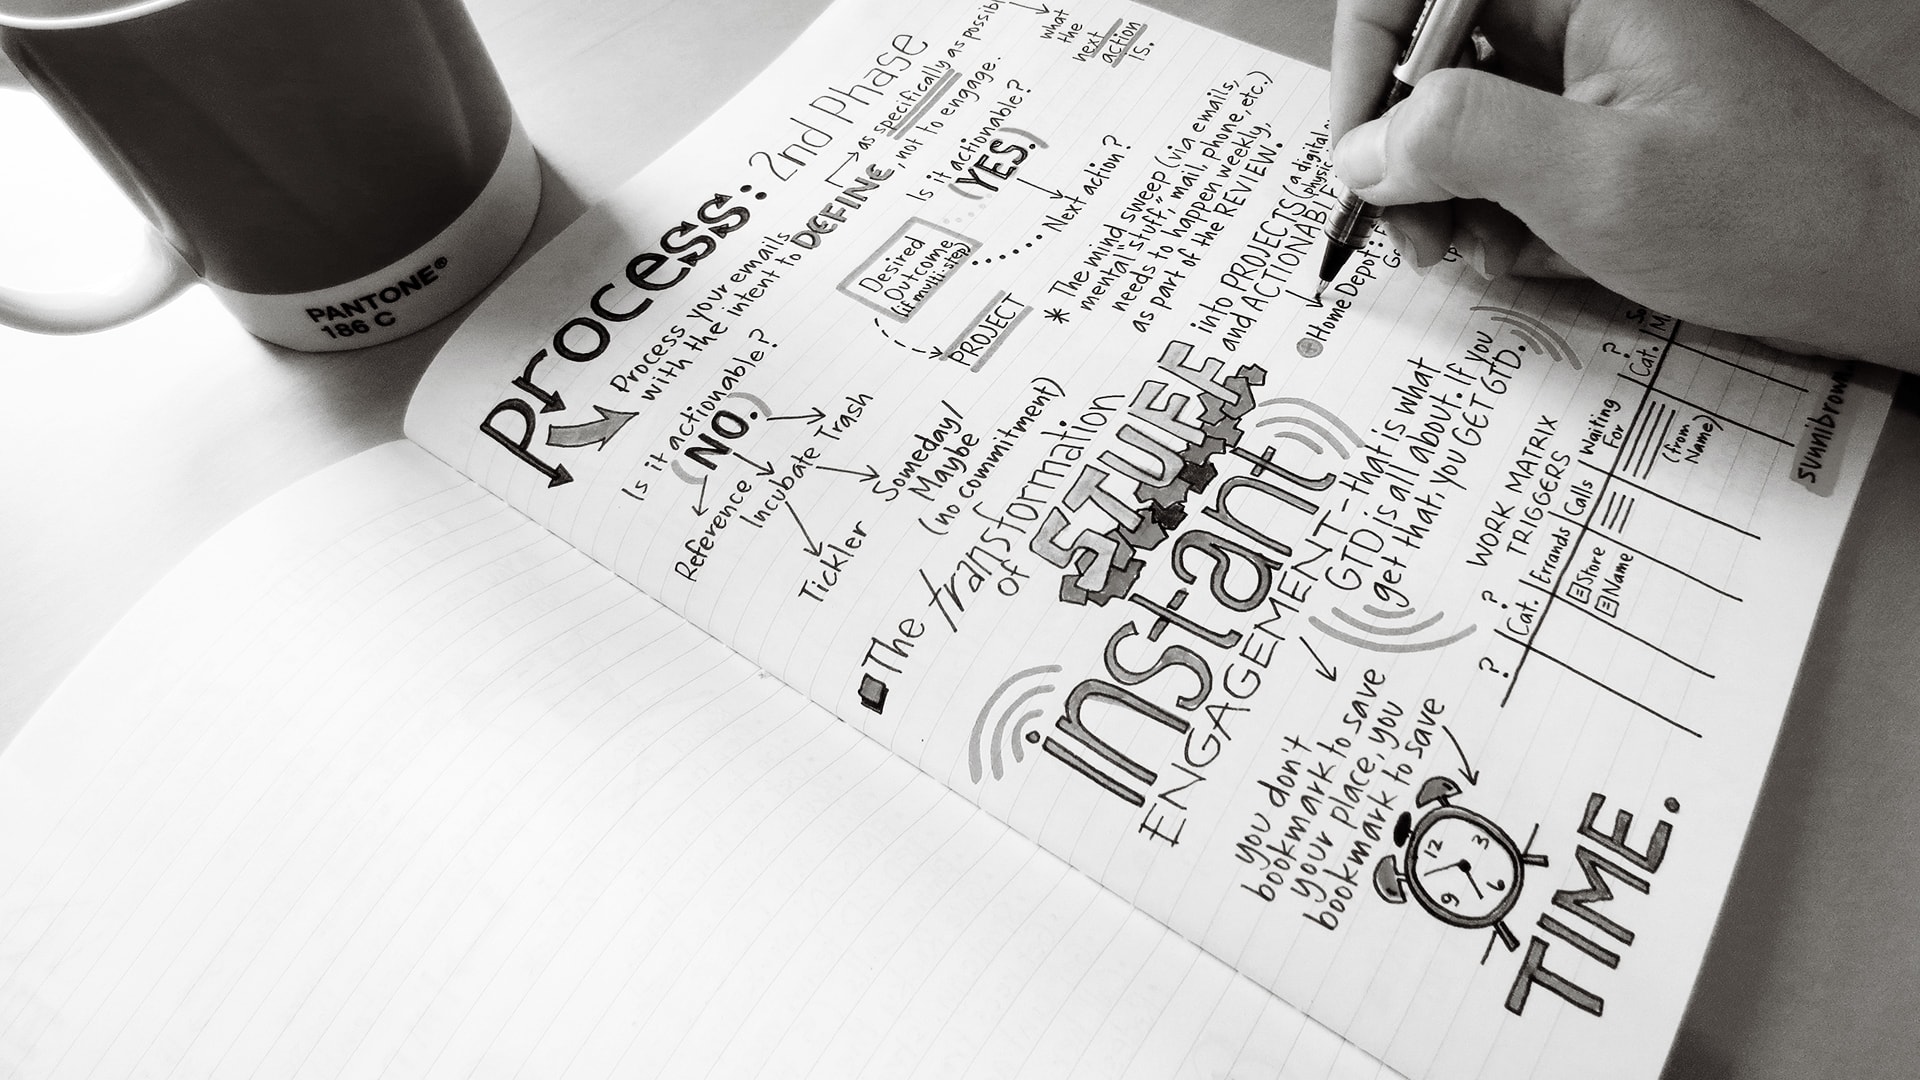 PANTONE®
186 C
Process: 2nd Phase
Process your emails
with the intent to DEFINE, not to engage.
as specifically as
what
the
next
action
is.
Is it actionable?
(NO.)
Trash
Incubate
Reference
Someday/
Maybe
(no commitment)
Tickler
Is it actionable?
(YES.)
Next action?
Desired
Outcome
(if multi-step)
PROJECT
* The mind sweep (via emails,
mental "stuff," mail, phone, etc.)
needs to happen weekly,
as part of the REVIEW.
The transformation
of STUFF
into PROJECTS (a digital
and
Home Depot:
instant
ENGAGEMENT - that is what
GTD is all about. If you
get that, you GET GTD.
you don't
bookmark to save
your place, you
bookmark to save
TIME.
12
3
6
9
WORK MATRIX
TRIGGERS
?
?
Cat.
Errands
Calls
Waiting
For
Cat.
?
Store
Name
(from
Name)
sunnibrown